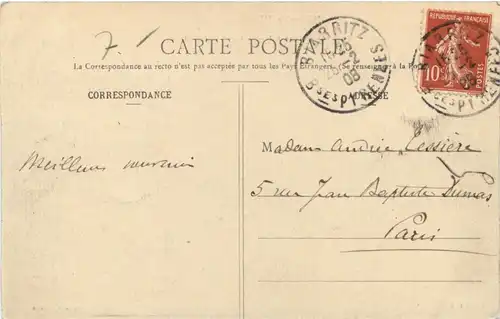 7.
CARTE POSTALE
La Correspondance au recto n'est pas acceptée par tous les Pays Etrangers. (Se renseigner à la Poste)
CORRESPONDANCE
ADRESSE
BIARRITZ
08
Bses PYRENEES
REPUBLIQUE FRANÇAISE
10
POSTES
Meilleurs souvenirs
Madame Andrée Lessière
5 rue Jean Baptiste Dumas
Paris